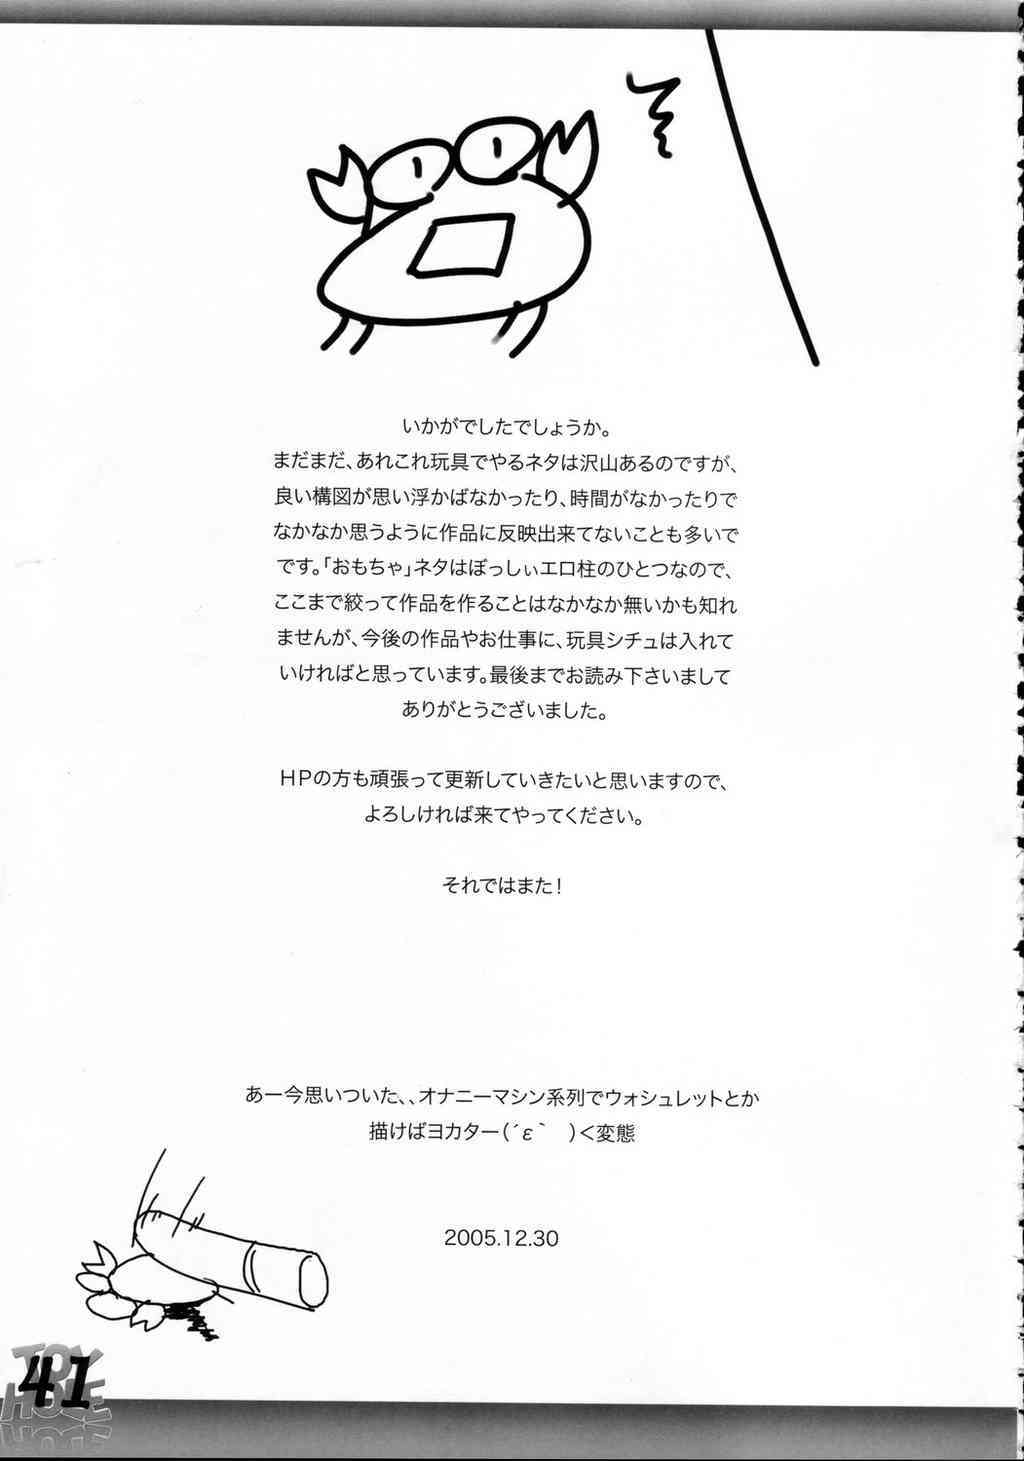 いかがでしたでしょうか。
まだまだ、あれこれ玩具でやるネタは沢山あるのですが、
良い構図が思い浮かばなかったり、時間がなかったりで
なかなか思うように作品に反映出来てないことも多いで
です。「おもちゃ」ネタはぼっしぃエロ柱のひとつなので、
ここまで絞って作品を作ることはなかなか無いかも知れ
ませんが、今後の作品やお仕事に、玩具シチュは入れて
いければと思っています。最後までお読み下さいまして
ありがとうございました。
HPの方も頑張って更新していきたいと思いますので、
よろしければ来てやってください。
それではまた!
あー今思いついた、、オナニーマシン系列でウォシュレットとか
描けばヨカター(´ε｀　)く変態
2005.12.30
TOY
HOLE
41